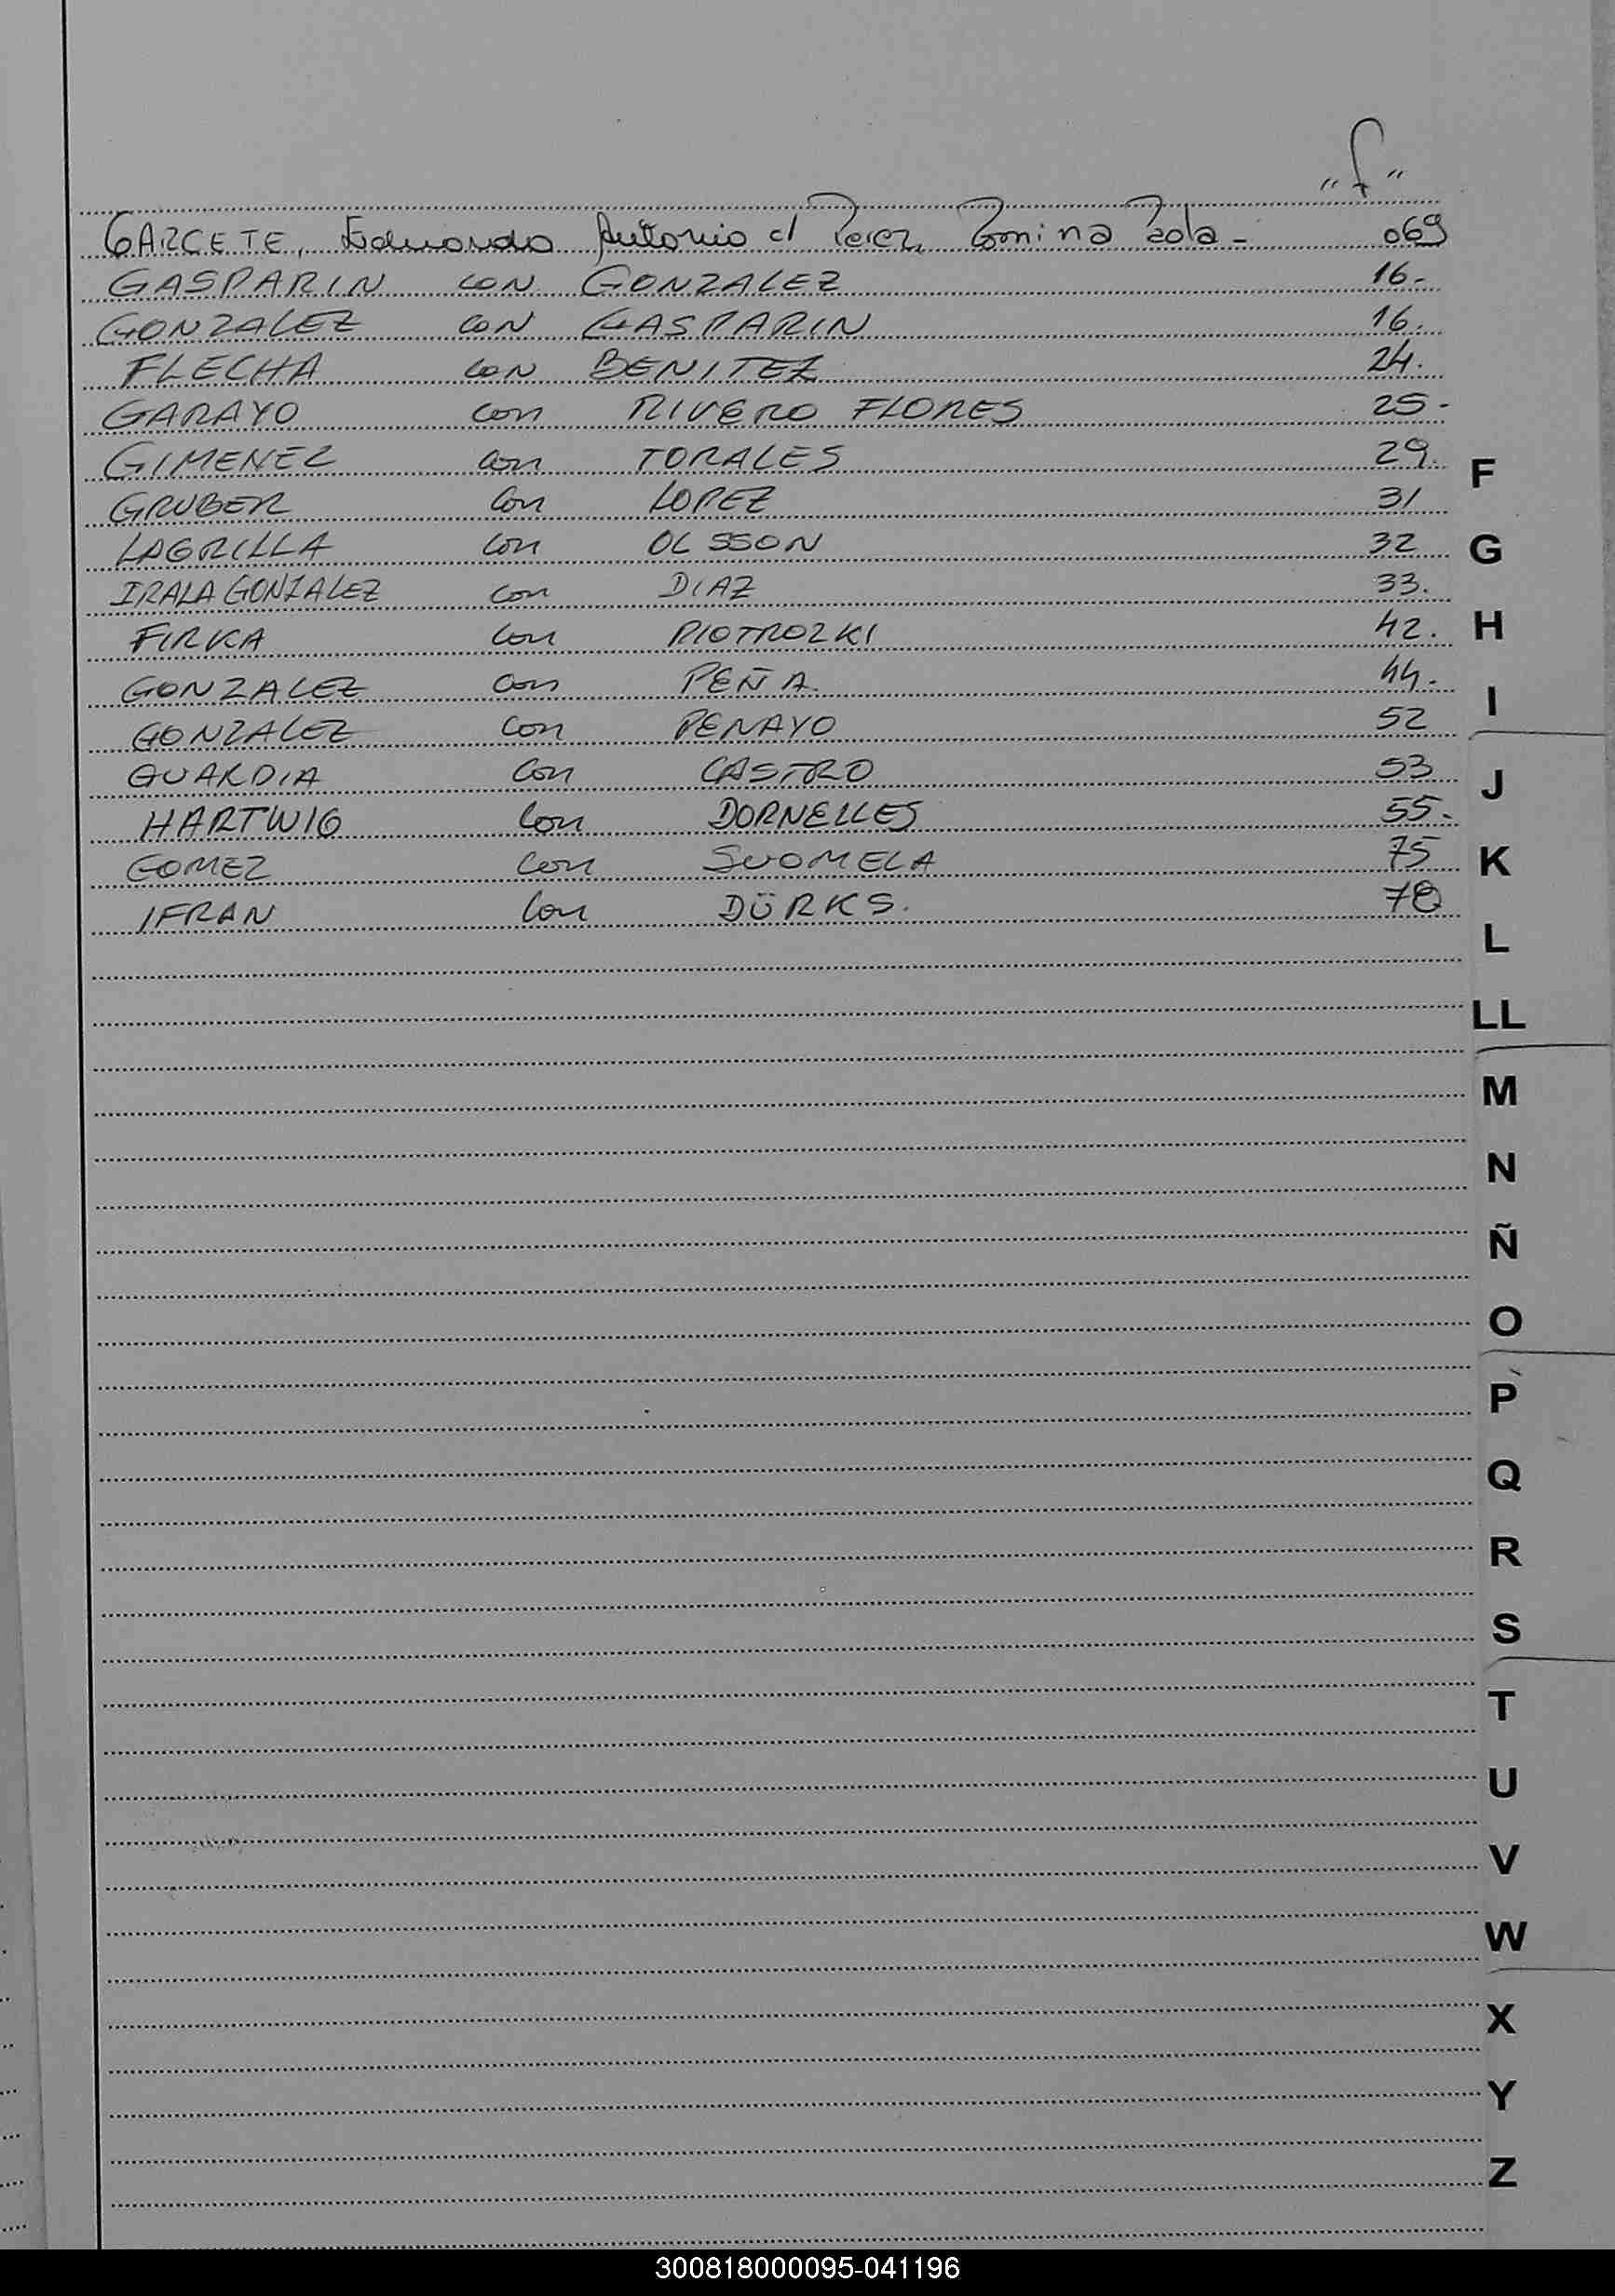 "f"
GARCETE, Eduardo Antonio c/ Perez, Romina Paola - 069
GASPARIN con GONZALEZ 16.-
GONZALEZ con GASPARIN 16.
FLECHA con BENITEZ 24.
GARAYO con RIVERO FLORES 25-
GIMENEZ con TORALES 29.
GRUBER con LOPEZ 31
LAGRILLA con OLSSON 32
IRALA GONZALEZ con DIAZ 33.
FIRKA con PIOTROZKI 42.
GONZALEZ con PEÑA. 44.-
GONZALEZ con PENAYO 52
GUARDIA con CASTRO 53
HARTWIG con DORNELLES 55-
GOMEZ con SUOMELA 75
IFRAN con DÜRKS. 78
F
G
H
I
J
K
L
LL
M
N
Ñ
O
P
Q
R
S
T
U
V
W
X
Y
Z
300818000095-041196